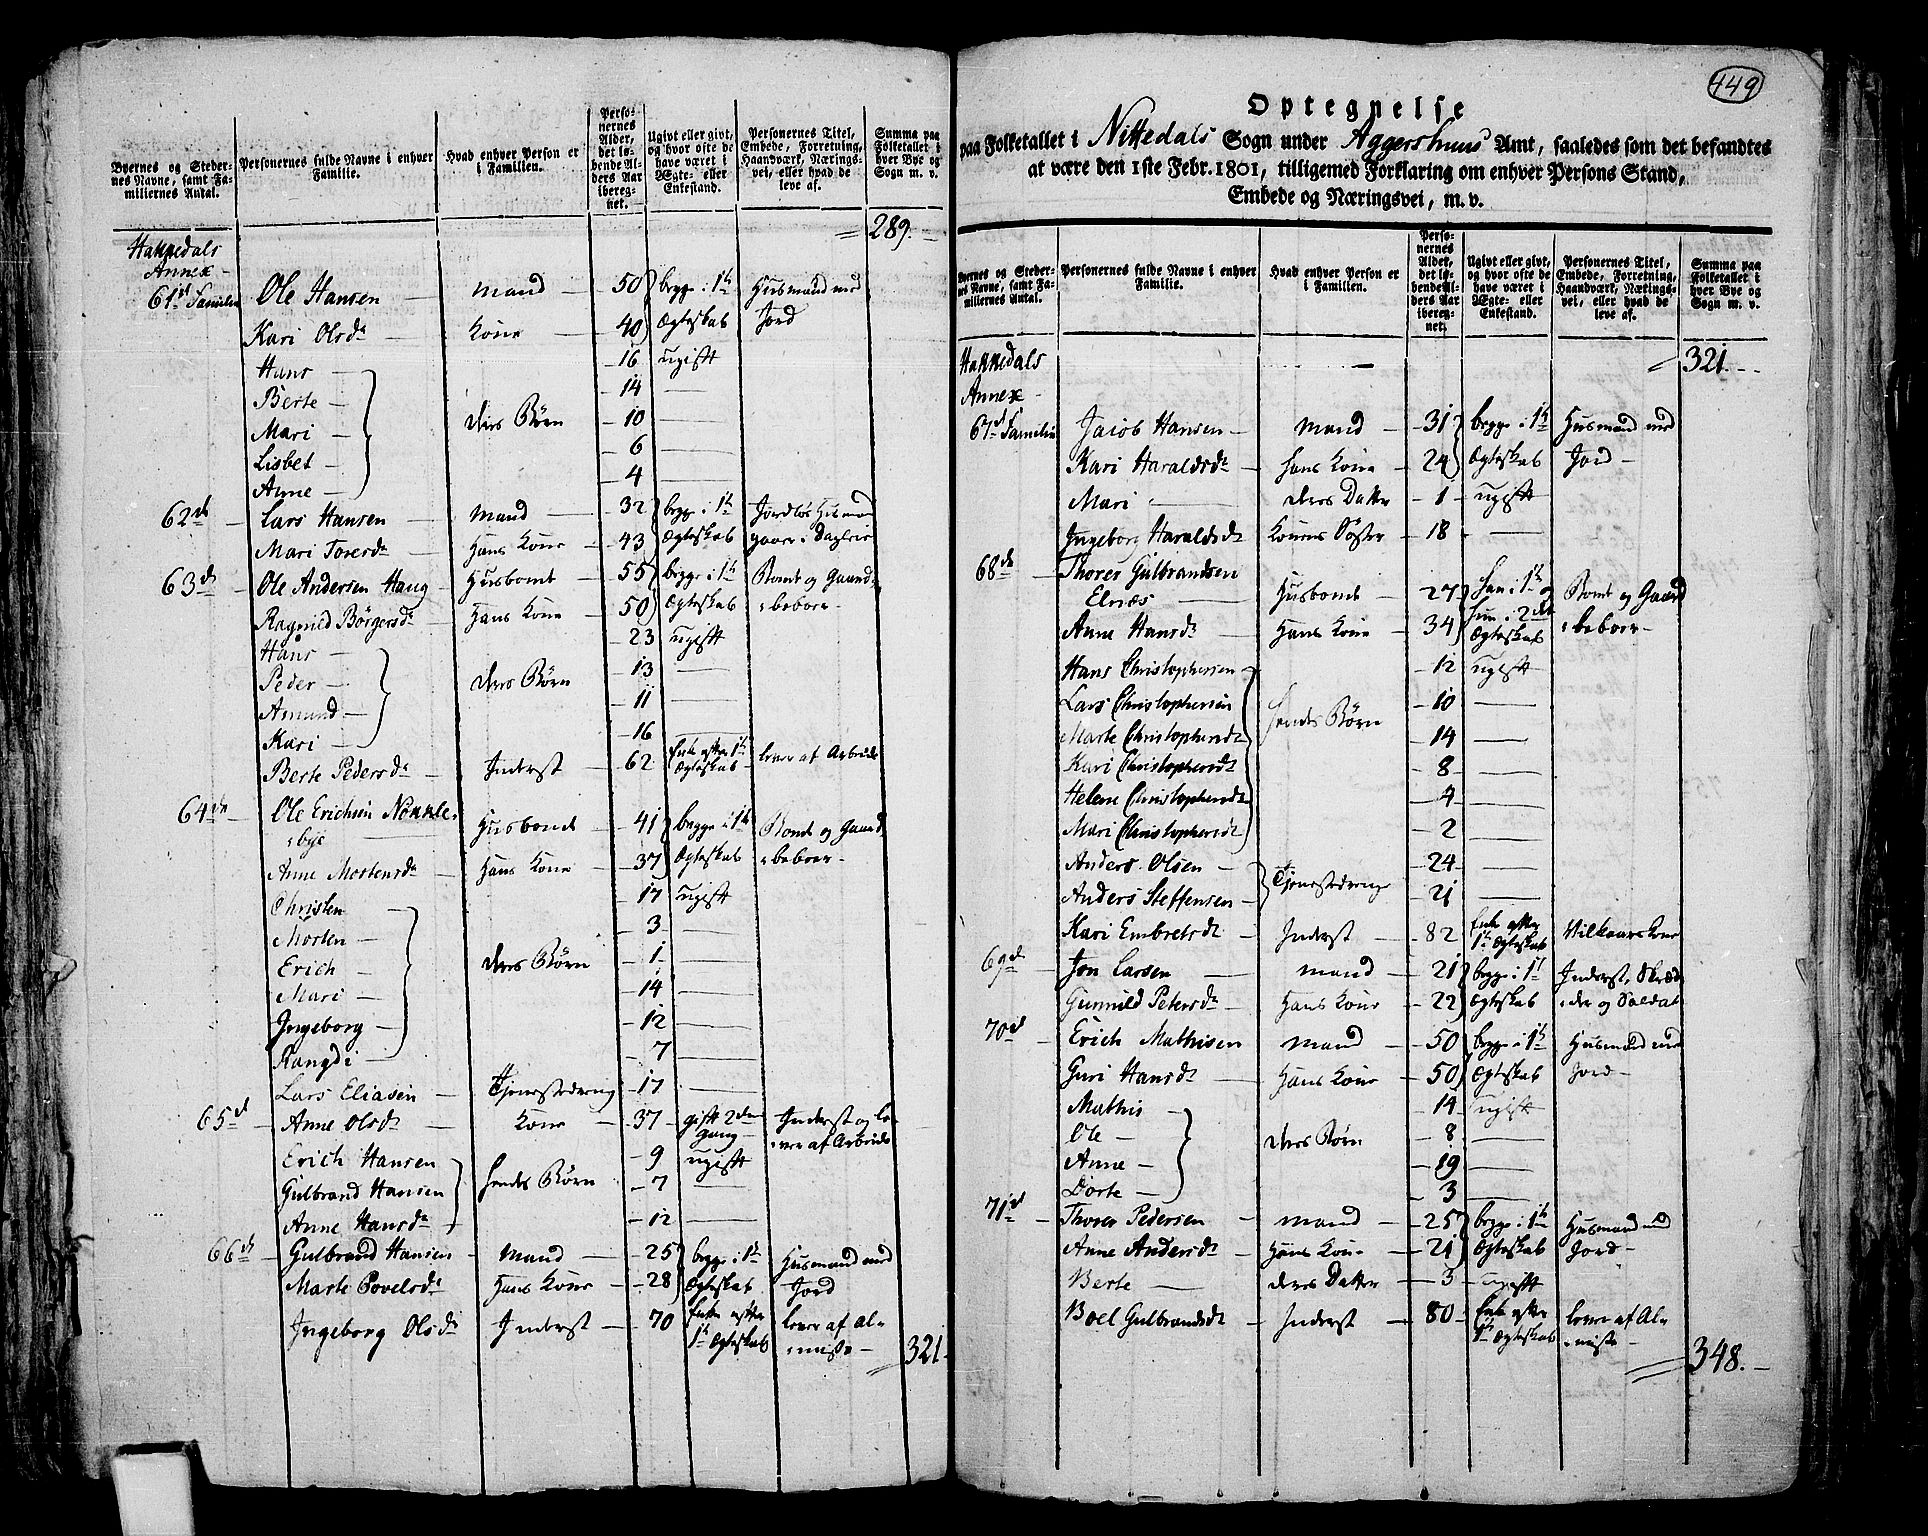 Byernes og Steder-
nes Navne, samt Fa-
miliernes Antal.
Personernes fulde Navne i enhver
Familie.
Hvad enhver Person er
i Familien.
Perso-
nernes
Alder,
det lø-
bende Al-
ders Aar
ibereg-
net.
Ugivt eller givt,
og hvor ofte de
have været i
Ægte- eller
Enkestand.
Personernes Titel,
Embede, Forretning,
Haandværk, Nærings-
vei, eller hvad de
leve af.
Summa paa
Folketallet i
hver Bye og
Sogn m. v.
= 289.
Hakkedals
Annex
61de Familie Ole Hansen mand 50 begge i 1te Husmand med
Kari Olsdr Kone 40 Ægteskab Jord
Hans 16 ugift
Berte 14
Mari ders Børn 10
Lisbet 6
Anne 4
62de Lars Hansen mand 32 begge i 1te Jordløs Husmand
Mari Toresdr Hans Kone 43 Ægteskab gaaer i Dagleie
63de Ole Andersen Haug Husbonde 55 begge i 1te Bonde og Gaard
Ragnild Børgersdr Hans Kone 50 Ægteskab beboer
Hans 23 ugift
Peder ders Børn 13
Amund 11
Kari 16
Berte Pedersdr Inderst 62 Enke efter 1te Ægteskab lever af Arbeide
64de Ole Erichsen Nokkle- Husbonde 41 begge i 1te Bonde og Gaard
bye
Anne Mortensdr Hans Kone 37 Ægteskab beboer
Christen 17 ugift
Morten 3
Erich ders Børn 1
Mari 14
Ingeborg 12
Rangdi 7
Lars Eliasen Tjenestedreng 17
65de Anne Olsdr Kone 37 gift 2den Inderst og le-
gang ver af Arbeide
Erich Hansen 9 ugift
Gulbrand Hansen hendes Børn 7
Anne Hansdr 12
66de Gulbrand Hansen mand 25 begge i 1te Husmand med
Marte Povelsdr Hans Kone 28 Ægteskab Jord
Ingeborg Olsdr Inderst 70 Enke efter lever af Al-
1te Ægteskab misse
= 321
449
Optegnelse
paa Folketallet i Nittedals Sogn under Aggershuus Amt, saaledes som det befandtes
at være den 1ste Febr. 1801, tilligemed Forklaring om enhver Persons Stand,
Embede og Næringsvei, m. v.
Byernes og Steder-
nes Navne, samt Fa-
miliernes Antal.
Personernes fulde Navne i enhver
Familie.
Hvad enhver Person er
i Familien.
Perso-
nernes
Alder,
det lø-
bende Al-
ders Aar
ibereg-
net.
Ugivt eller givt,
og hvor ofte de
have været i
Ægte- eller
Enkestand.
Personernes Titel,
Embede, Forretning,
Haandværk, Nærings-
vei, eller hvad de
leve af.
Summa paa
Folketallet i
hver Bye og
Sogn m. v.
= 321.
Hakkedals
Annex
67de Familie Jacob Hansen mand 31 begge i 1te Husmand med
Kari Haraldsdr hans Kone 24 Ægteskab Jord
Mari ders Datter 1 ugift
Ingeborg Haraldsdr Konens Søster 18
68de Thorer Gulbrandsen
Elnæs Husbonde 27 han i 1te og Bonde og Gaard
Anne Hansdr Hans Kone 34 hun i 2det Ægteskab beboer
Hans Christophersen 12 ugift
Lars Christophersen 10
Marte Christophersdr hendes Børn 14
Kari Christophersdr 8
Helene Christophersdr 4
Mari Christophersdr 2
Anders Olsen 24
Anders Steffensen Tjenestedrenge 21
Kari Embretsdr Inderst 82 Enke efter 1te Ægteskab Vilkaarskone
69de Jon Larsen mand 21 begge i 1te Inderst, Skræd-
Gunnild Petersdr Hans Kone 22 Ægteskab der og Soldat
70de Erich Mathisen mand 50 begge i 1te Husmand med
Guri Hansdr Hans Kone 50 Ægteskab Jord
Mathis 14 ugift
Ole ders Børn 8
Anne 19
Dorte 3
71de Thorer Pedersen mand 25 begge i 1te Husmand med
Anne Andersdr Hans Kone 21 Ægteskab Jord
Berte ders Datter 3 ugift
Boel Gulbrandsdr Inderst 80 Enke efter lever af Al-
1te Ægteskab misse
= 348.